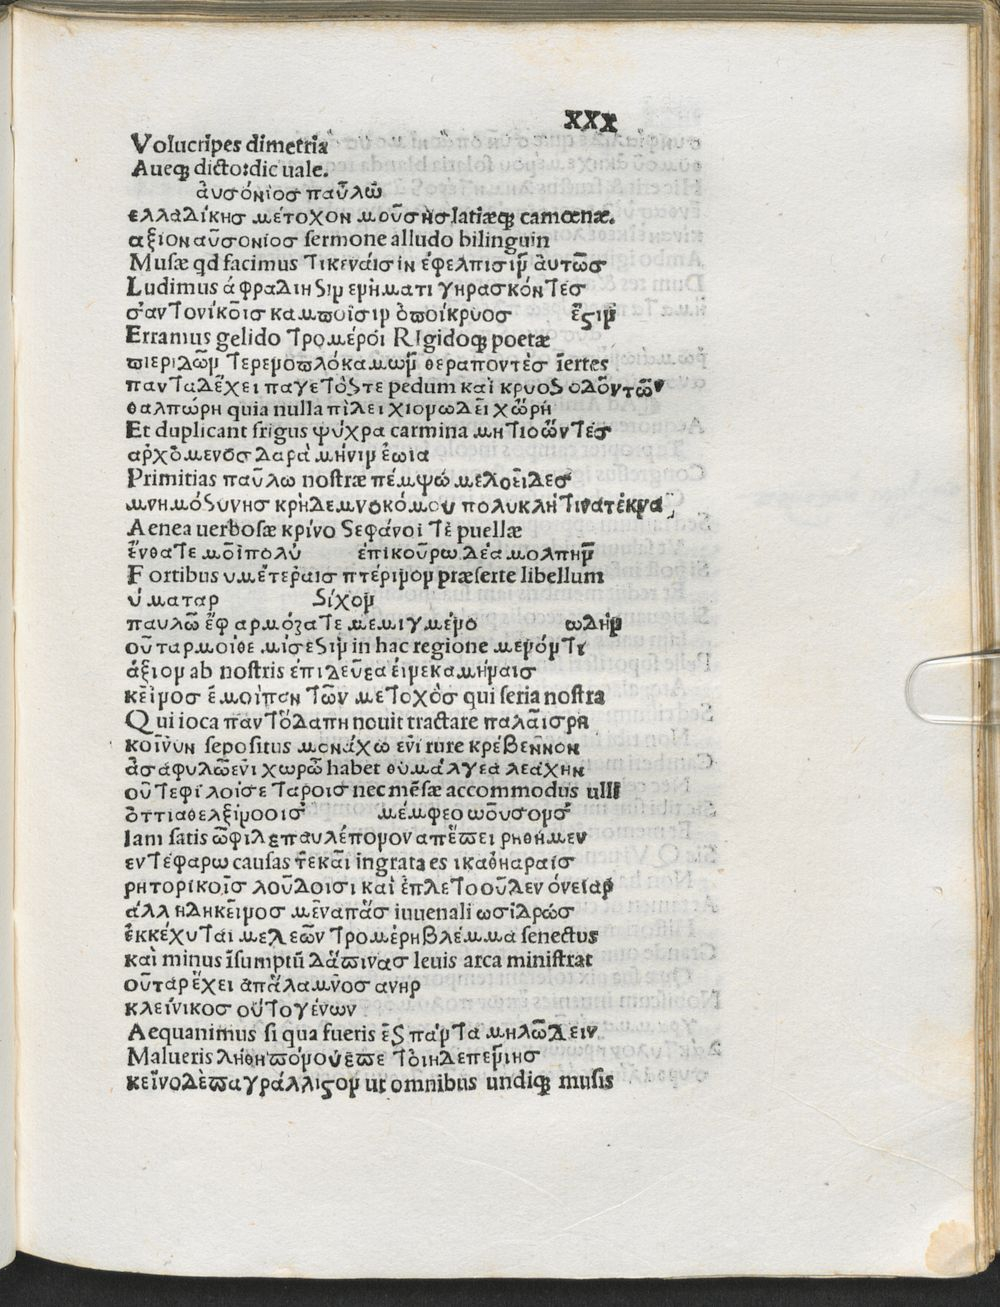 XXX
Volucripes dimetria
Aueq; dicto: dic uale.
ἀυσόνιοσ παῦλῶ
ελλαδίκησ μέτοχον μοῦσησ latiæq; camœnæ.
αξιοναῦσονίοσ sermone alludo bilinguin
Musæ qd facimus τικενάισ ἰν ἐφελπισιν̃ ἀυτῶσ
Ludimus ἀφραδιησιν ερήματι γηρασκόντέσ
σαντονίκοῖσ καμποῖσιν ὁποίκρυοσ ἔςιν̃
Erramus gelido τρομέρόι RIgidoq; poetæ
πιεριδῶν τερενοπλόκαμων̃ θεραποντὲσ ĩertes
πανταδἔχει παγετὸστε pedum καὶ κρυοσ οδὄντῶν
θαλπώρη quia nulla πὶλει χιονωδεῖ χὥρή
Et duplicant frigus ψύχρα carmina μητιοὥντέσ
αρχὸμενὸσ δαρὰ μήνιν ἑωια
Primitias παῦλω nostræ πέμψώ μελοεῖδεσ
μνημόσυνησ κρήδεμνοκόμου πολυκλήτινατέκνα
Aenea uerbosæ κρίνο σεφάνοι τὲ puellæ
ἔνθατε μοῖπολὺ ἐπικοῦρω δέα μολπην̃
Fortibus υμέτεραισ πτέρινον præferte libellum
ύματαρ Sίχον
παυλῶ ἔφαρμόζατε μεμιγμενο ωδήν
οὖταρμοίθε μίσεσιν̃ in hac regione μενόντι
ἄξιον ab nostris ἐπιδεύεα ἐινεκαμήναισ
κεῖνοσ ἐμοιπαν τῶν μετοχὸσ qui seria nostra
Qui ioca παντὸδαπη nouit tractare παλαισρη
κοῖνυν sepositus μονάχω ενὶ rure κρέβεννον
ἀσαφυλῶενὶ χωρῶ habet θυμάλγεα λεάχην
οὔτεφιλοισετάροισ nec mẽsæ accommodus ulli
ὃττιαθελξίνοοισ μέμφεο ωοῦσομσ
Iam satis ὦφιλεπαυλέπονον απἔπει ρηθήμεν
εντέφαρω causas τ̃εκαῖ ingrata es ικαθηαραίσ
ρητορικοῖσ λοῦδοισι καὶ ἔπλετοοὖδεν όνειαρ
ἀλληδηκεῖνοσ μἒναπᾶσ iuuenali ωσιδρώσ
ἐκκέχυται μελεῶν τρομέρηβλέμμα senectus
καὶ minus ĩsumptũ δἅπινασ leuis arca ministrat
οὖταρἔχει απἄλαμνοσ ανηρ
κλείνικοσ οὐτογένων
Aequanimus si qua fueris ἐς πάντα μηλῶδειν
Malueris λήθηπόνουἔπε τοιηδεπενῖησ
κεῖνοδὲπαγράλλιςον ut omnibus undiq; musis